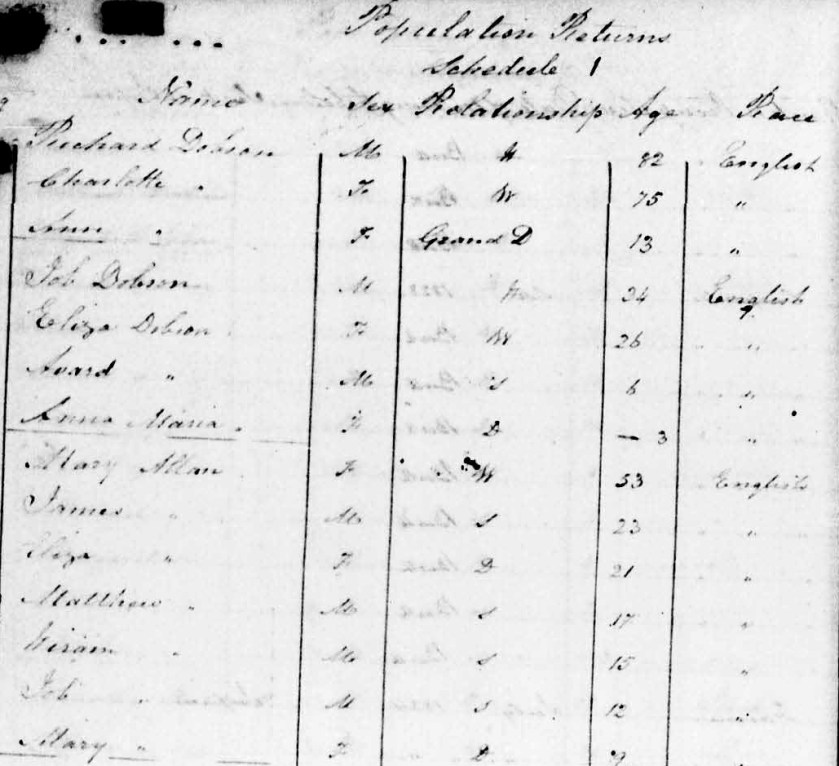 Population Returns
Schedule 1
Name Sex Relationship Age Race
Richard Dobson M H 82 English
Charlotte " F W 75 "
Ann " F Grand D 13 "
Job Dobson M H 34 English
Eliza Dobson F W 26 "
Avard " M S 6 "
Anna Maria " F D - 3 "
Mary Allan F W 53 English
James " M S 23 "
Eliza " F D 21 "
Matthew " M S 17 "
Hiram " M S 15 "
Job " M S 12 "
Mary " F D 9